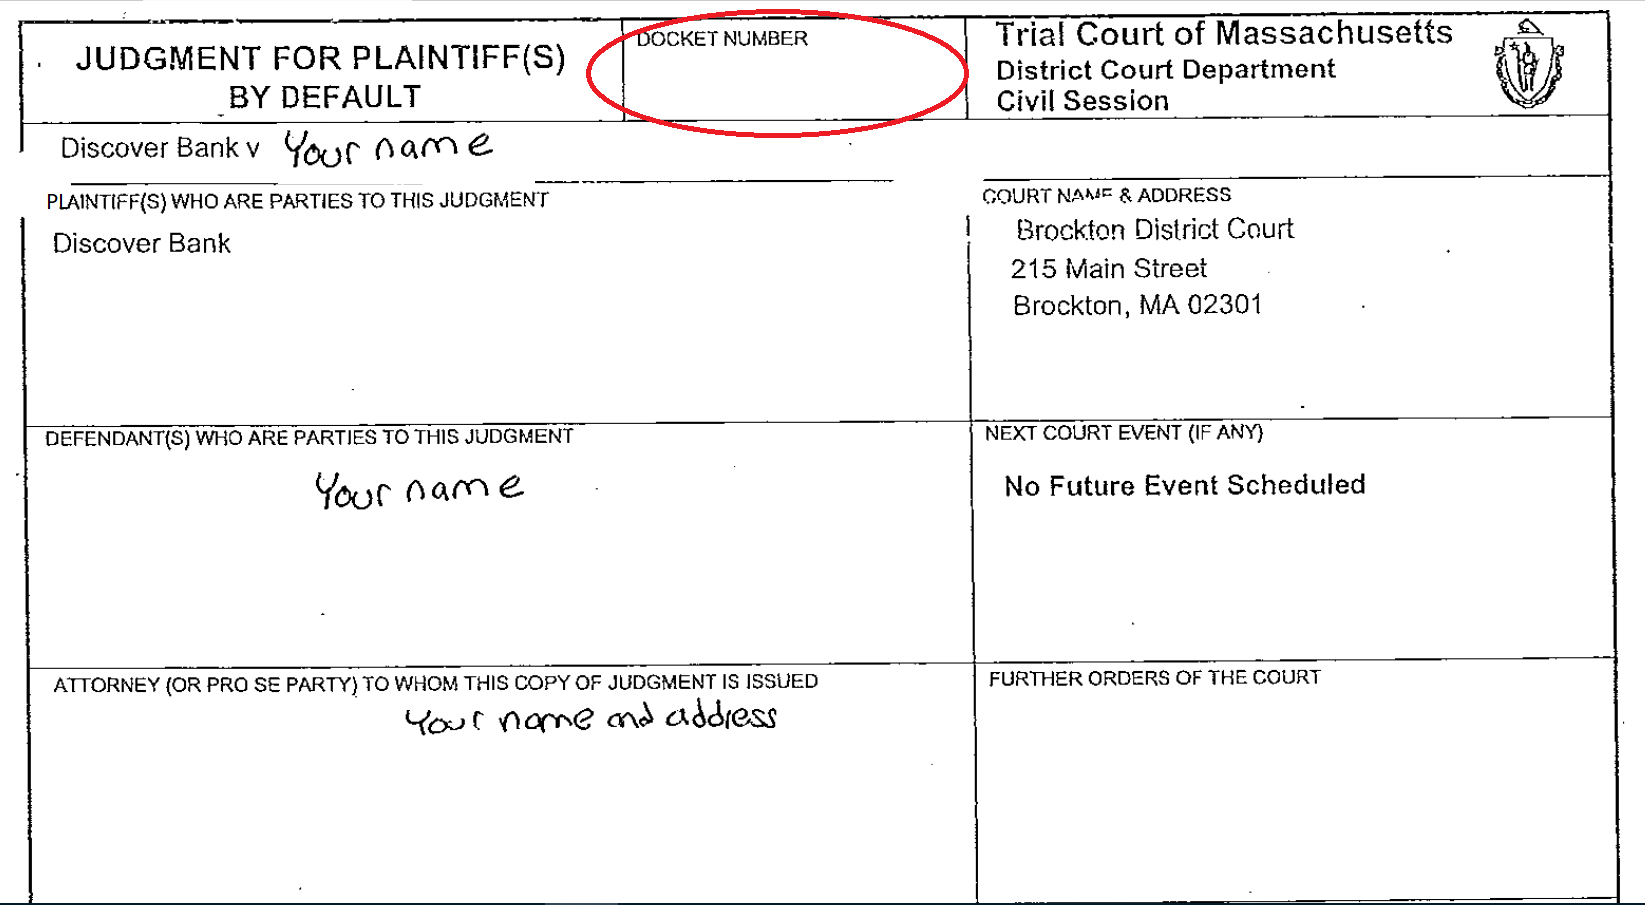 JUDGMENT FOR PLAINTIFF(S)
BY DEFAULT
DOCKET NUMBER
Trial Court of Massachusetts
District Court Department
Civil Session
Discover Bank v Your name
PLAINTIFF(S) WHO ARE PARTIES TO THIS JUDGMENT
Discover Bank
COURT NAME & ADDRESS
Brockton District Court
215 Main Street
Brockton, MA 02301
DEFENDANT(S) WHO ARE PARTIES TO THIS JUDGMENT
Your name
NEXT COURT EVENT (IF ANY)
No Future Event Scheduled
ATTORNEY (OR PRO SE PARTY) TO WHOM THIS COPY OF JUDGMENT IS ISSUED
Your name and address
FURTHER ORDERS OF THE COURT